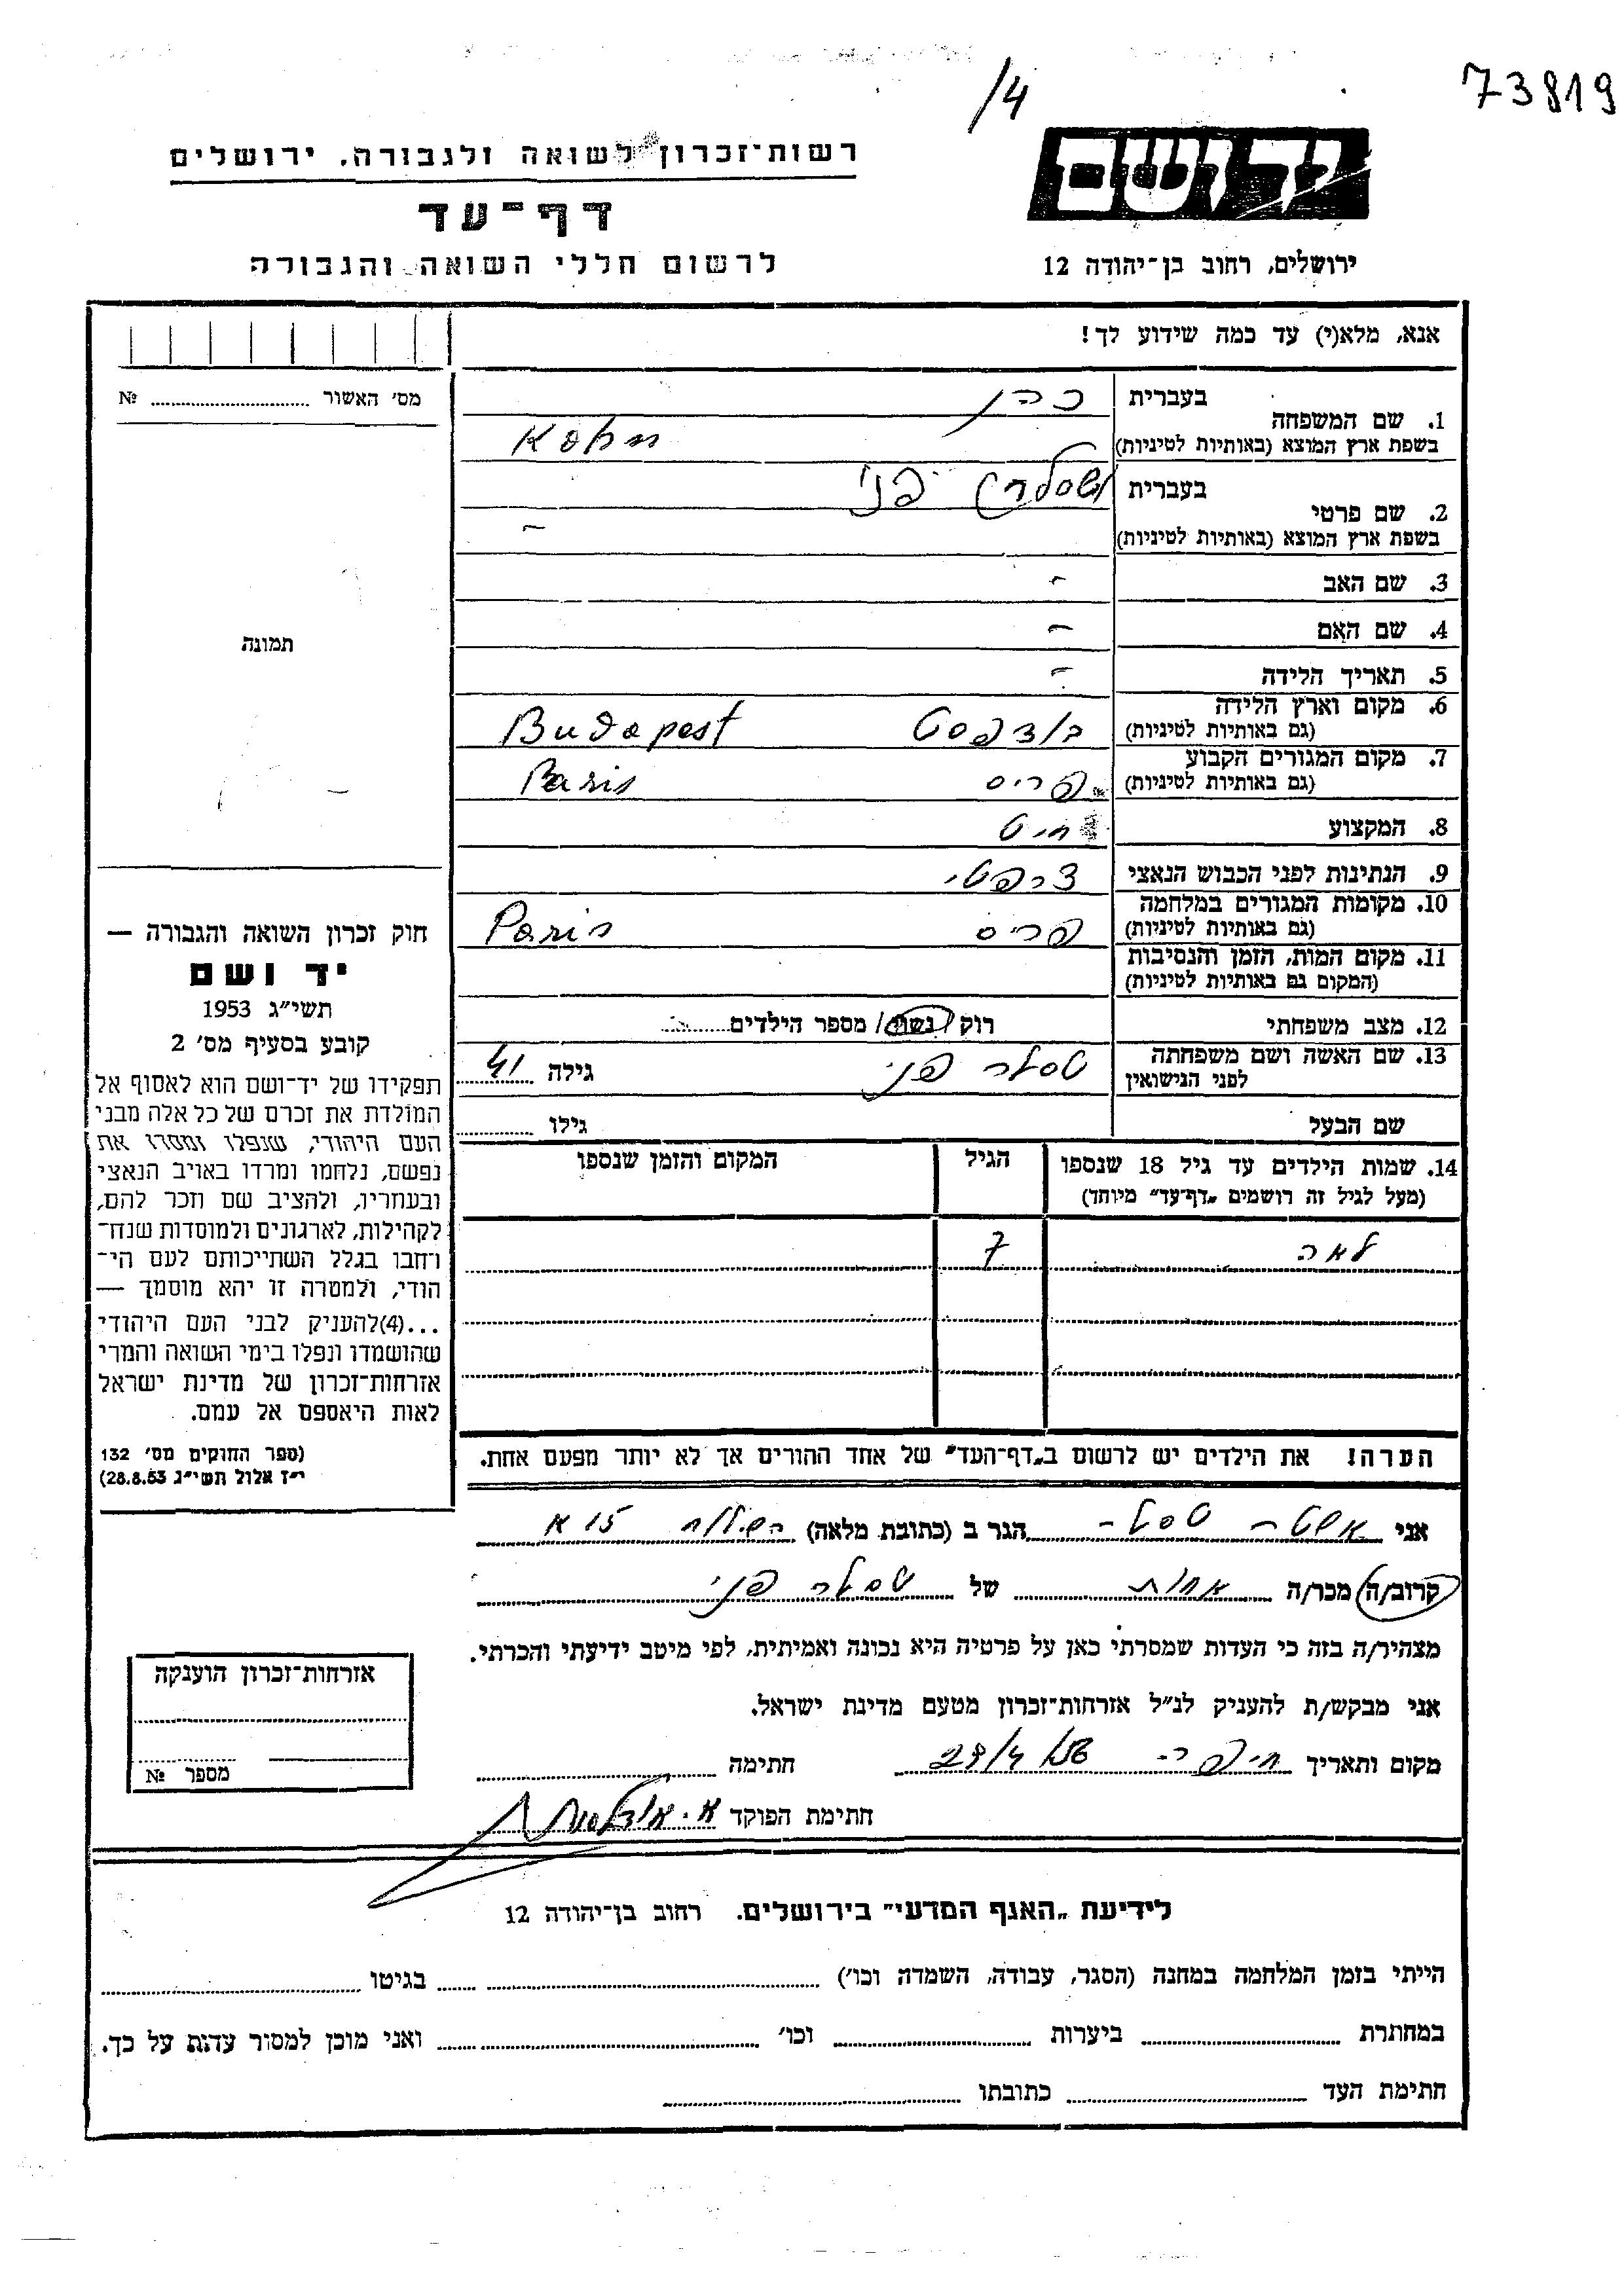 73819
/4
יד ושם
רשות-זכרון לשואה ולגבורה, ירושלים
דף-עד
לרשום חללי השואה והגבורה
ירושלים, רחוב בן-יהודה 12
אנא, מלא(י) עד כמה שידוע לך!
מס' האשור № 
1. שם המשפחה
בעברית כהן
בשפת ארץ המוצא (באותיות לטיניות) Kohn
2. שם פרטי
בעברית פני
בשפת ארץ המוצא (באותיות לטיניות) -
3. שם האב -
4. שם האם -
5. תאריך הלידה -
6. מקום וארץ הלידה
(גם באותיות לטיניות) בודפסט Budapest
7. מקום המגורים הקבוע
(גם באותיות לטיניות) פריס Paris
8. המקצוע חיט
9. הנתינות לפני הכבוש הנאצי צרפטי
10. מקומות המגורים במלחמה
(גם באותיות לטיניות) פריס Paris
11. מקום המות, הזמן והנסיבות
(המקום גם באותיות לטיניות)
12. מצב משפחתי רוק / נשוי / מספר הילדים
13. שם האשה ושם משפחתה
לפני הנישואין טסלר פני גילה 41
שם הבעל גילו
14. שמות הילדים עד גיל 18 שנספו
(מעל לגיל זה רושמים „דף-עד" מיוחד)
הגיל
המקום והזמן שנספו
לאה 7
הערה! את הילדים יש לרשום ב„דף-העד" של אחד ההורים אך לא יותר מפעם אחת.
תמונה
חוק זכרון השואה והגבורה —
יד ושם
תשי"ג 1953
קובע בסעיף מס' 2
תפקידו של יד-ושם הוא לאסוף אל
המולדת את זכרם של כל אלה מבני
העם היהודי, שנפלו ומסרו את
נפשם, נלחמו ומרדו באויב הנאצי
ובעוזריו, ולהציב שם וזכר להם,
לקהילות, לארגונים ולמוסדות שנח-
רחבו בגלל השתייכותם לעם הי-
הודי, ולמטרה זו יהא מוסמך —
...(4) להעניק לבני העם היהודי
שהושמדו ונפלו בימי השואה והמרי
אזרחות-זכרון של מדינת ישראל
לאות היאספם אל עמם.
(ספר החוקים מס' 132
י"ז אלול תשי"ג 28.8.53)
אני אסתר טסלר הגר ב (כתובת מלאה) 15 א
קרוב/ה מכר/ה אחות של טסלר פני
מצהיר/ה בזה כי העדות שמסרתי כאן על פרטיה היא נכונה ואמיתית, לפי מיטב ידיעתי והכרתי.
אני מבקש/ת להעניק לנ"ל אזרחות-זכרון מטעם מדינת ישראל.
מקום ותאריך חיפה חתימה
חתימת הפוקד
אזרחות-זכרון הוענקה
מספר №
לידיעת „האגף המדעי" בירושלים, רחוב בן-יהודה 12
הייתי בזמן המלחמה במחנה (הסגר, עבודה, השמדה וכו') בגיטו
במחתרת ביערות וכו' ואני מוכן למסור עדות על כך.
חתימת העד כתובתו